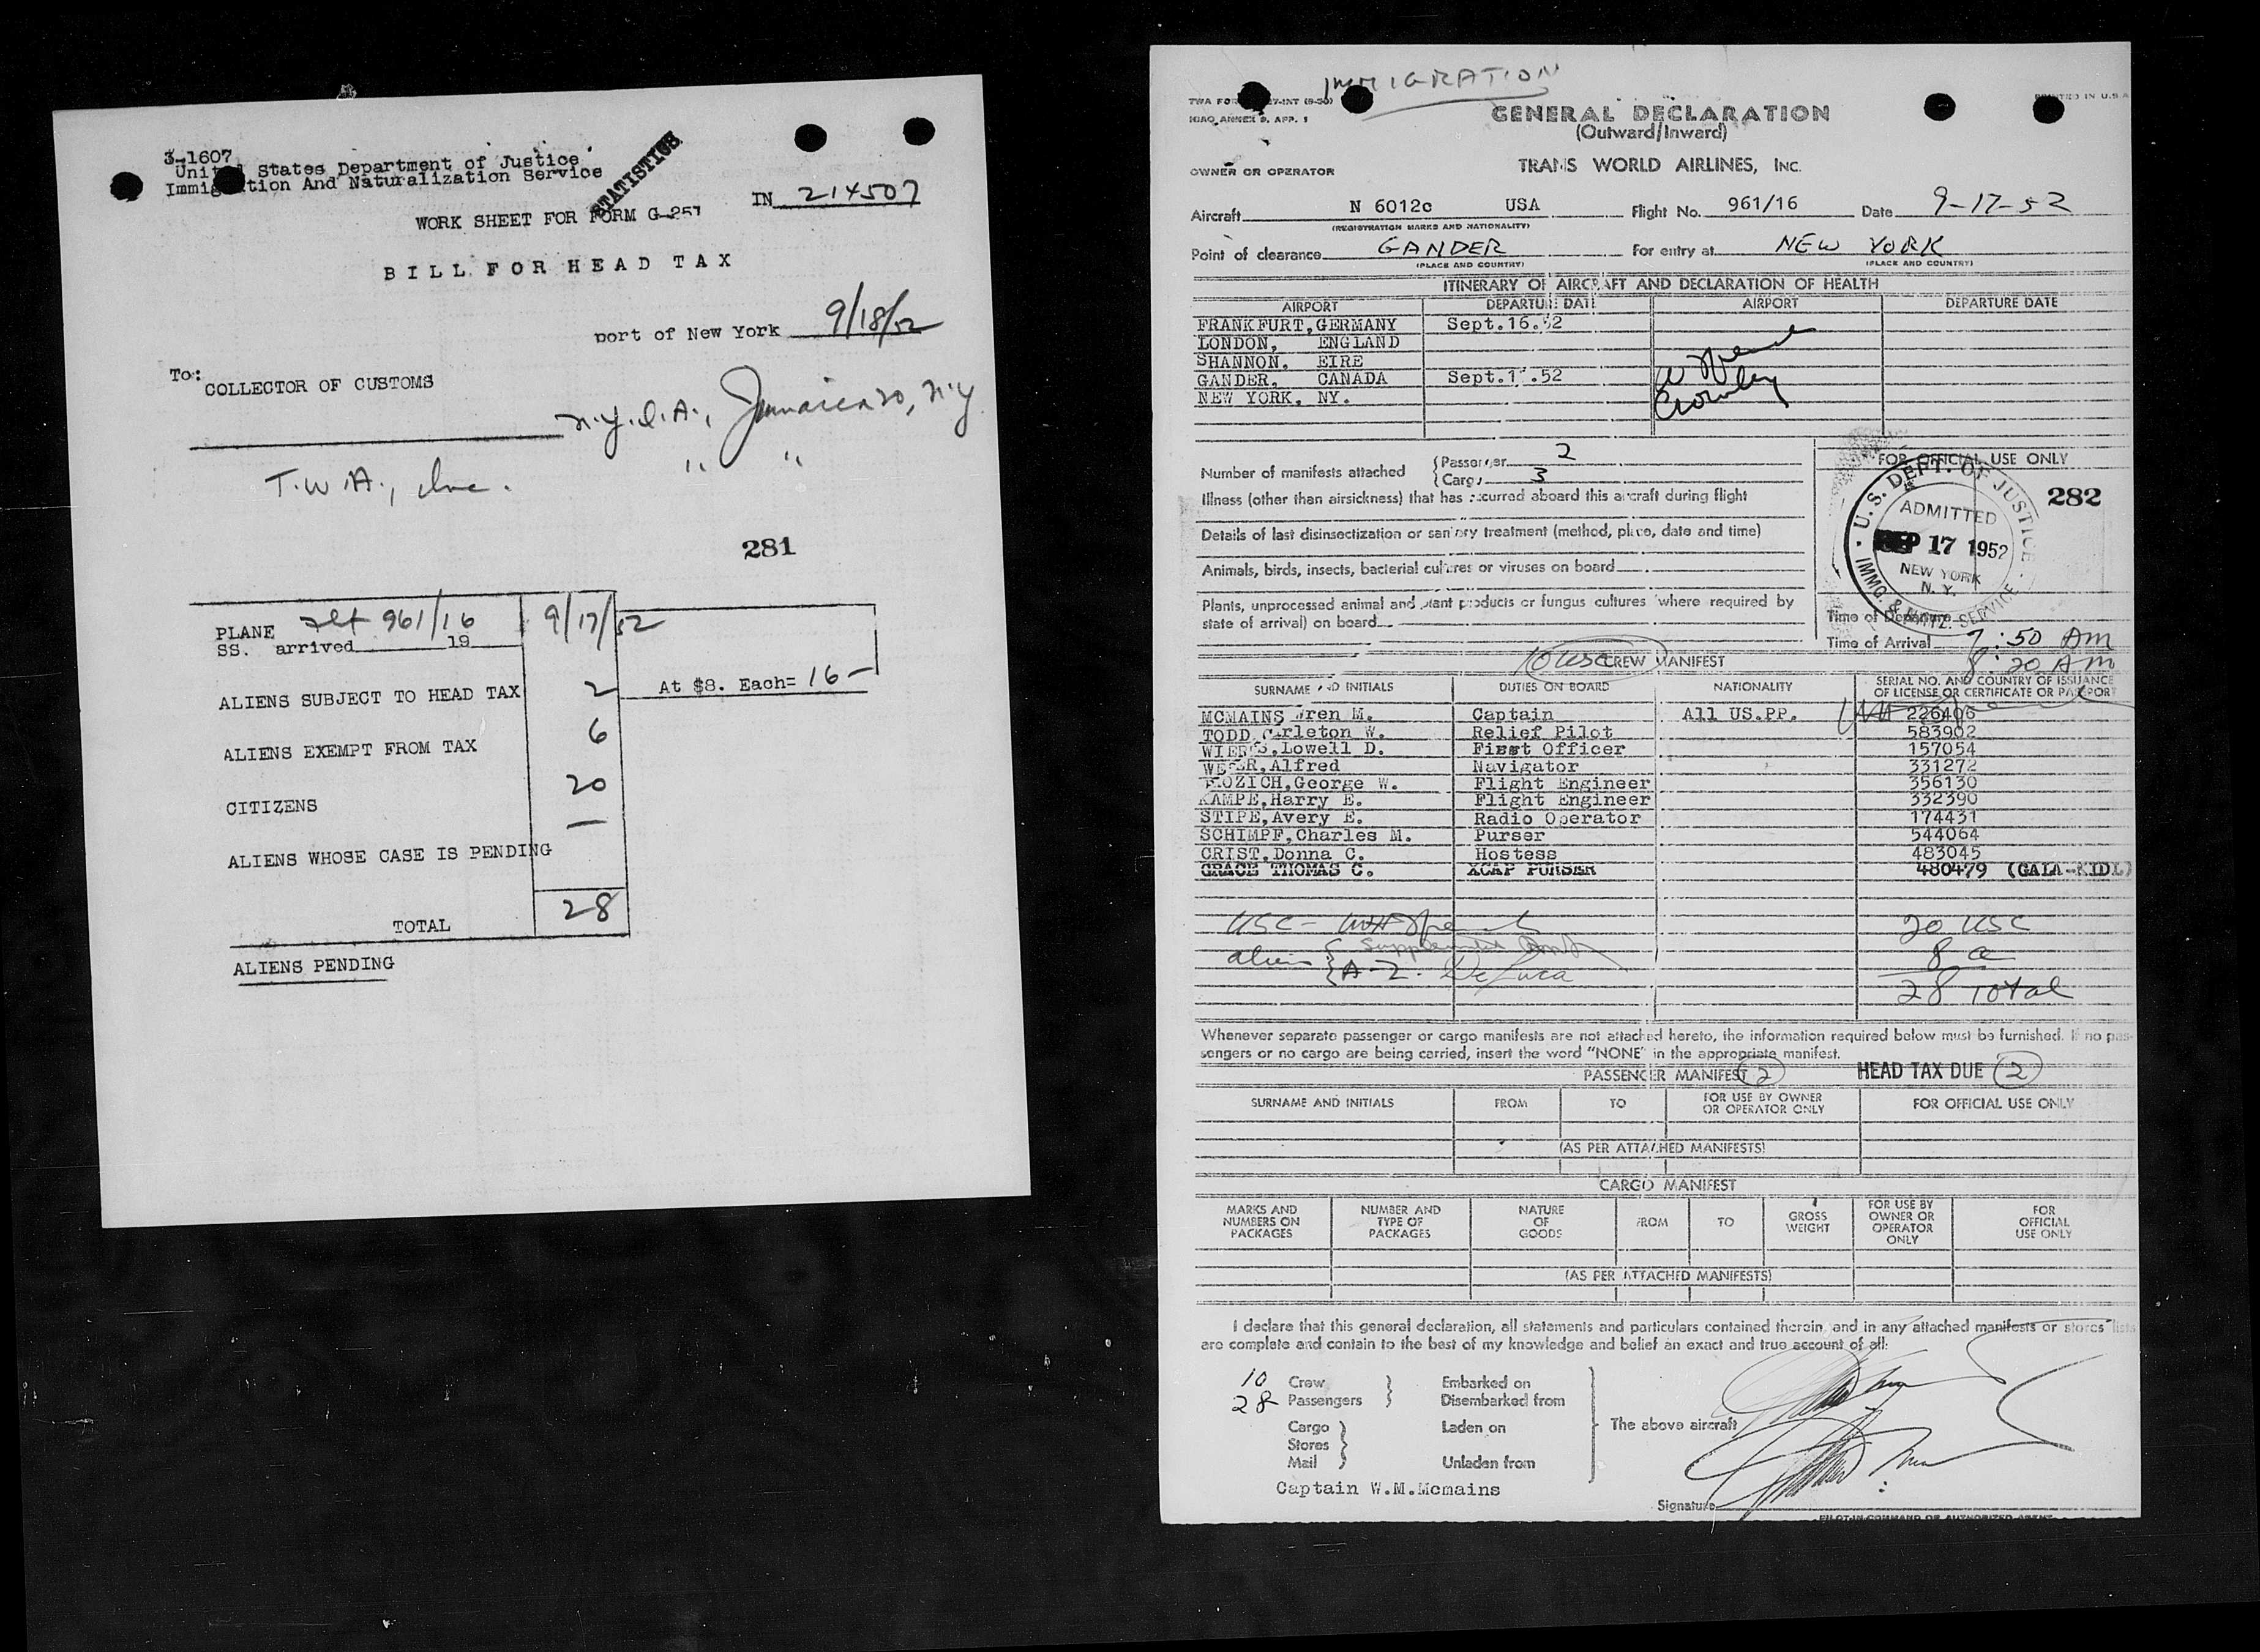 3-1607
United States Department of Justice
Immigration And Naturalization Service
STATISTICS
IN 214507
WORK SHEET FOR FORM G-257
BILL FOR HEAD TAX
port of New York 9/18/52
To: COLLECTOR OF CUSTOMS
N.Y.I.A., Jamaica 30, N.Y.
T.W.A., Inc. " "
281
PLANE Flt 961/16 9/17/52
SS. arrived 19
ALIENS SUBJECT TO HEAD TAX 2 At $8. Each= 16-
ALIENS EXEMPT FROM TAX 6
CITIZENS 20
ALIENS WHOSE CASE IS PENDING —
TOTAL 28
ALIENS PENDING
IMMIGRATION
PRINTED IN U.S.A
ICAO ANNEX 9, APP. 1
GENERAL DECLARATION
(Outward/Inward)
OWNER OR OPERATOR TRANS WORLD AIRLINES, INC.
Aircraft N 6012c USA Flight No. 961/16 Date 9-17-52
(REGISTRATION MARKS AND NATIONALITY)
Point of clearance GANDER For entry at NEW YORK
(PLACE AND COUNTRY) (PLACE AND COUNTRY)
ITINERARY OF AIRCRAFT AND DECLARATION OF HEALTH
AIRPORT DEPARTURE DATE AIRPORT DEPARTURE DATE
FRANKFURT, GERMANY Sept.16.52
LONDON, ENGLAND
SHANNON, EIRE
GANDER, CANADA Sept.1 .52
NEW YORK, NY.
Number of manifests attached { Passenger 2
{ Cargo 3
FOR OFFICIAL USE ONLY
282
U.S. DEPT. OF JUSTICE
ADMITTED
SEP 17 1952
NEW YORK
N. Y.
IMMG. & NATZ. SERVICE
Illness (other than airsickness) that has occurred aboard this aircraft during flight
Details of last disinsectization or sanitary treatment (method, place, date and time)
Animals, birds, insects, bacterial cultures or viruses on board
Plants, unprocessed animal and plant products or fungus cultures (where required by
state of arrival) on board
Time of Departure
Time of Arrival 7:50 AM
8:20 AM
10 USC CREW MANIFEST
SURNAME AND INITIALS DUTIES ON BOARD NATIONALITY SERIAL NO. AND COUNTRY OF ISSUANCE
OF LICENSE OR CERTIFICATE OR PASSPORT
MCMAINS ren M. Captain All US.PP. 226406
TODD, Carleton W. Relief Pilot 583902
Lowell D. First Officer 157054
Alfred Navigator 331272
George W. Flight Engineer 356130
KAMPE, Harry E. Flight Engineer 332390
STIPE, Avery E. Radio Operator 174431
SCHIMPF, Charles M. Purser 544064
CRIST, Donna C. Hostess 483045
GRACE THOMAS C. XCAP PURSER 480479 (GALA-KIDL)
USC - 20 USC
alien { 8 a
{ A-Z. DeLuca 28 Total
Whenever separate passenger or cargo manifests are not attached hereto, the information required below must be furnished. If no pas-
sengers or no cargo are being carried, insert the word "NONE" in the appropriate manifest.
PASSENGER MANIFEST 2 HEAD TAX DUE 2
SURNAME AND INITIALS FROM TO FOR USE BY OWNER OR OPERATOR ONLY FOR OFFICIAL USE ONLY
(AS PER ATTACHED MANIFESTS)
CARGO MANIFEST
MARKS AND NUMBERS ON PACKAGES NUMBER AND TYPE OF PACKAGES NATURE OF GOODS FROM TO GROSS WEIGHT FOR USE BY OWNER OR OPERATOR ONLY FOR OFFICIAL USE ONLY
(AS PER ATTACHED MANIFESTS)
I declare that this general declaration, all statements and particulars contained therein, and in any attached manifests or stores lists
are complete and contain to the best of my knowledge and belief an exact and true account of all:
10 Crew } Embarked on
28 Passengers } Disembarked from
Cargo } Laden on The above aircraft
Stores }
Mail } Unladen from
Captain W.M.Mcmains
Signature
PILOT-IN-COMMAND OR AUTHORIZED AGENT